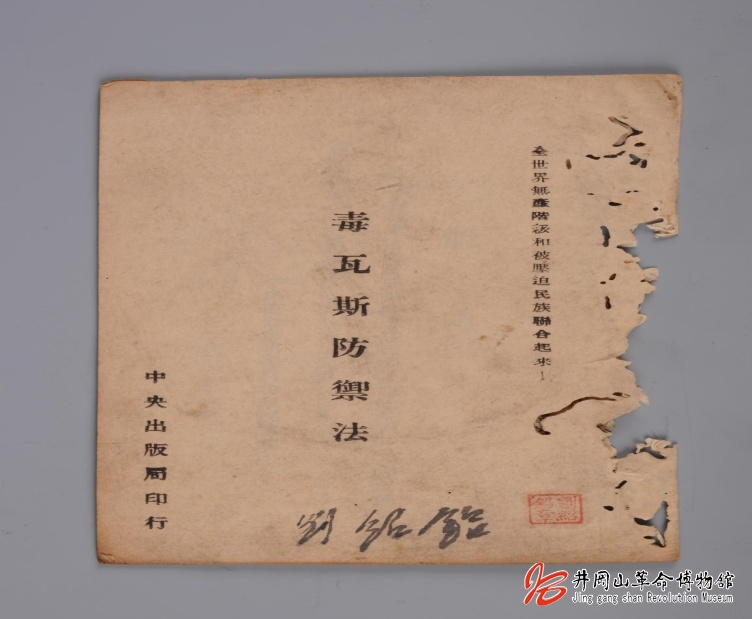 全世界無產階級和被壓迫民族聯合起來！
毒瓦斯防禦法
中央出版局印行
井冈山革命博物館
Jing gang shan Revolution Museum